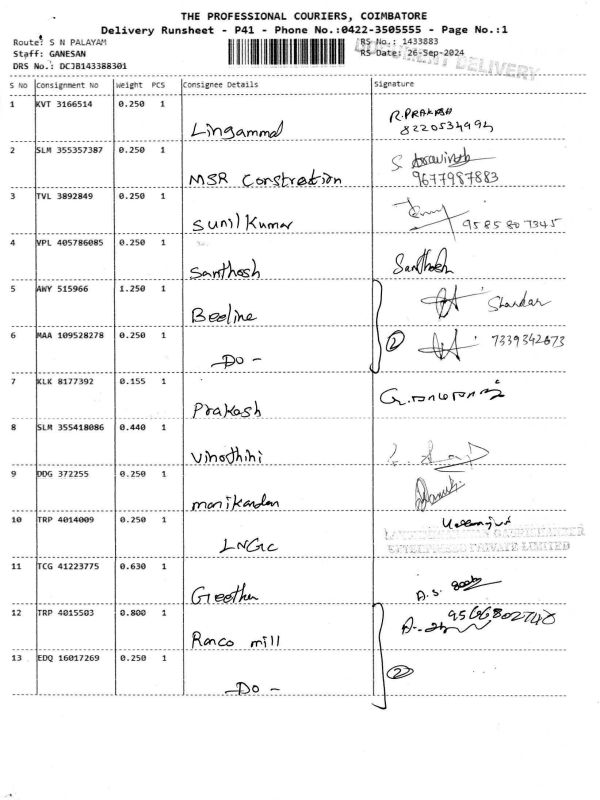 THE PROFESSIONAL COURIERS, COIMBATORE
Delivery Runsheet - P41 - Phone No.:0422-3505555 - Page No.:1
Route: S N PALAYAM RS No.: 1433883
Staff: GANESAN RS Date: 26-Sep-2024
DRS No.: DCJB143388301 DELIVERY
S No Consignment No Weight PCS Consignee Details Signature
1 KVT 3166514 0.250 1 Lingammal R.PRAKASH
8220534994
2 SLM 355357387 0.250 1 MSR Constration S Aravinth
9677987883
3 TVL 3892849 0.250 1 Sunil Kumar 9585807345
4 VPL 405786085 0.250 1 Santhosh Santhosh
5 AWY 515966 1.250 1 Beeline Shankar
6 MAA 109528278 0.250 1 -DO- 2 7339342673
7 KLK 8177392 0.155 1 Prakash
8 SLM 355418086 0.440 1 Vinothini
9 DDG 372255 0.250 1 manikandan
10 TRP 4014009 0.250 1 LNGC
PRIVATE LIMITED
11 TCG 41223775 0.630 1 Geetha A.S.
12 TRP 4015503 0.800 1 Ranco mill 9566802748
13 EDQ 16017269 0.250 1 -DO- 2